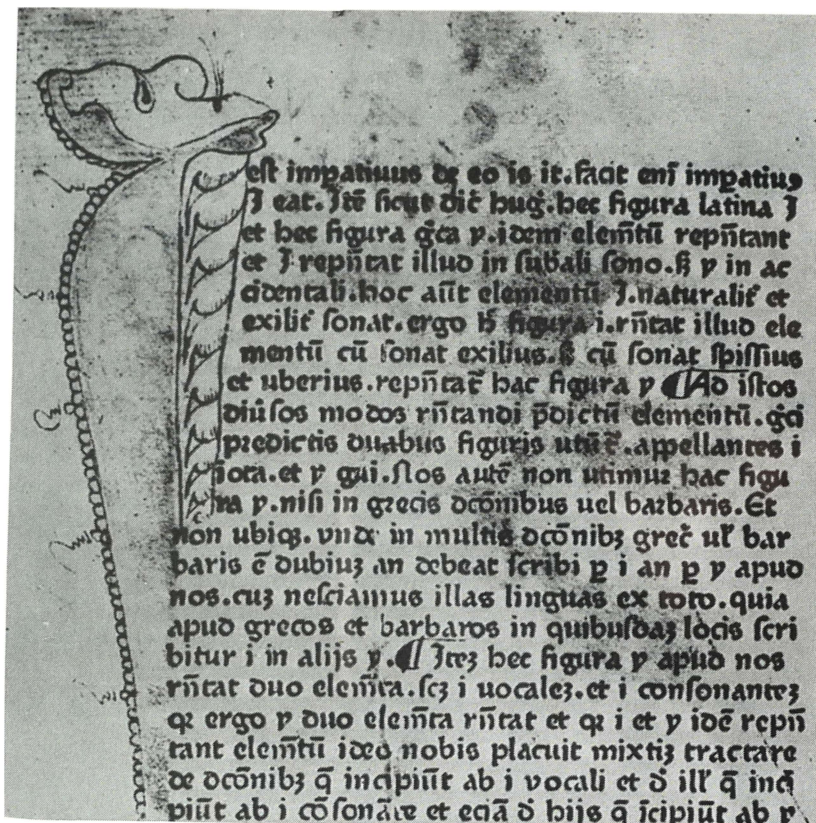 est impatiuus de eo is it. facit enī impatiuꝰ
I eat. Itē sicut dic̄ huḡ. hec figura latina I
et hec figura gc̄a y. idem elem̄tū repn̄tant
et I repn̄tat illud in subali sono. ß y in ac
cidentali. hoc aūt elementū I. naturalit̄ et
exilit̄ sonat. ergo h̄ figura i. rn̄tat illud ele
mentū cū sonat exilius. ß cū sonat spissius
et uberius. repn̄tat᷒ hac figura y ¶ Ad istos
diūsos modos rn̄tandi p̄dictū elementū. gc̄i
predictis duabus figuris utūt᷒. appellantes i
iota. et y gui. Nos autē non utimur hac figu
ra y. nisi in grecis dcōnibus uel barbaris. Et
non ubiqꝫ. vnde in multis dcōnibꝫ grec̄ ul̄ bar
baris ē dubiuꝫ an debeat scribi ꝑ i an ꝑ y apud
nos. cuꝫ nesciamus illas linguas ex toto. quia
apud grecos et barbaros in quibusdaꝫ locis scri
bitur i in alijs y. ¶ Iteꝫ hec figura y apud nos
rn̄tat duo elem̄ta. scꝫ i uocaleꝫ. et i consonanteꝫ
qꝛ ergo y duo elem̄ta rn̄tat et qꝛ i et y idē repn̄
tant elem̄tū ideo nobis placuit mixtiꝫ tractare
de dcōnibꝫ q̄ incipiūt ab i vocali et d̄ ill̄ q̄ inci
piūt ab i cōsonāte et eciā d̄ hijs q̄ īcipiūt ab y